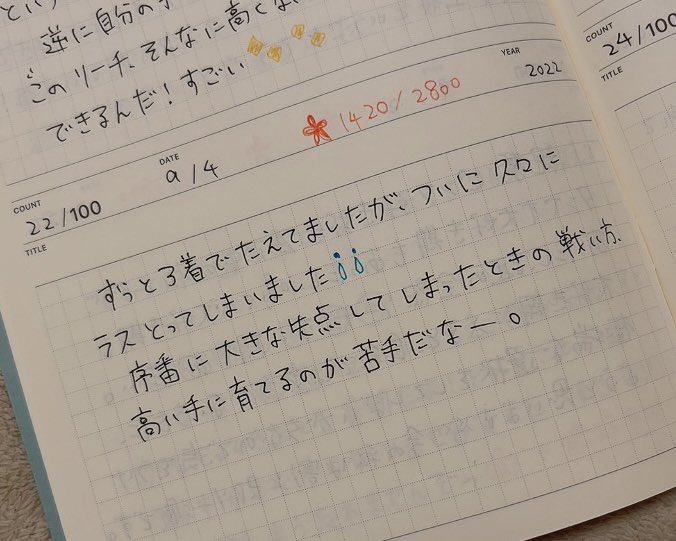 逆に自分の
このリーチ、そんなに高くな
できるんだ！すごい
COUNT
24/100
TITLE
1420/2800
YEAR
2022
DATE
9/4
COUNT
22/100
TITLE
ずっと3着でたえてましたが、ついに久々に
ラスとってしまいました
序盤に大きな失点してしまったときの戦い方、
高い手に育てるのが苦手だなー。